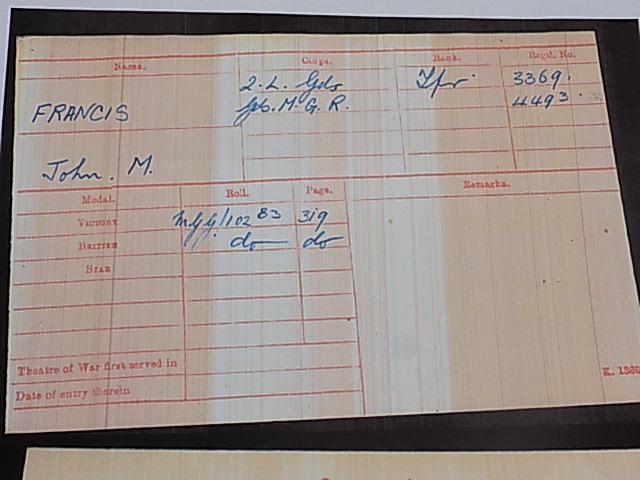 Name. Corps. Rank. Regtl. No.
2. L. Gds Tpr. 3369.
FRANCIS Gds. M. G. R. 4493.
John. M.
Medal. Roll. Page. Remarks.
VICTORY MGG/102 B3 319
BRITISH do do
STAR
Theatre of War first served in
Date of entry therein
K. 1380